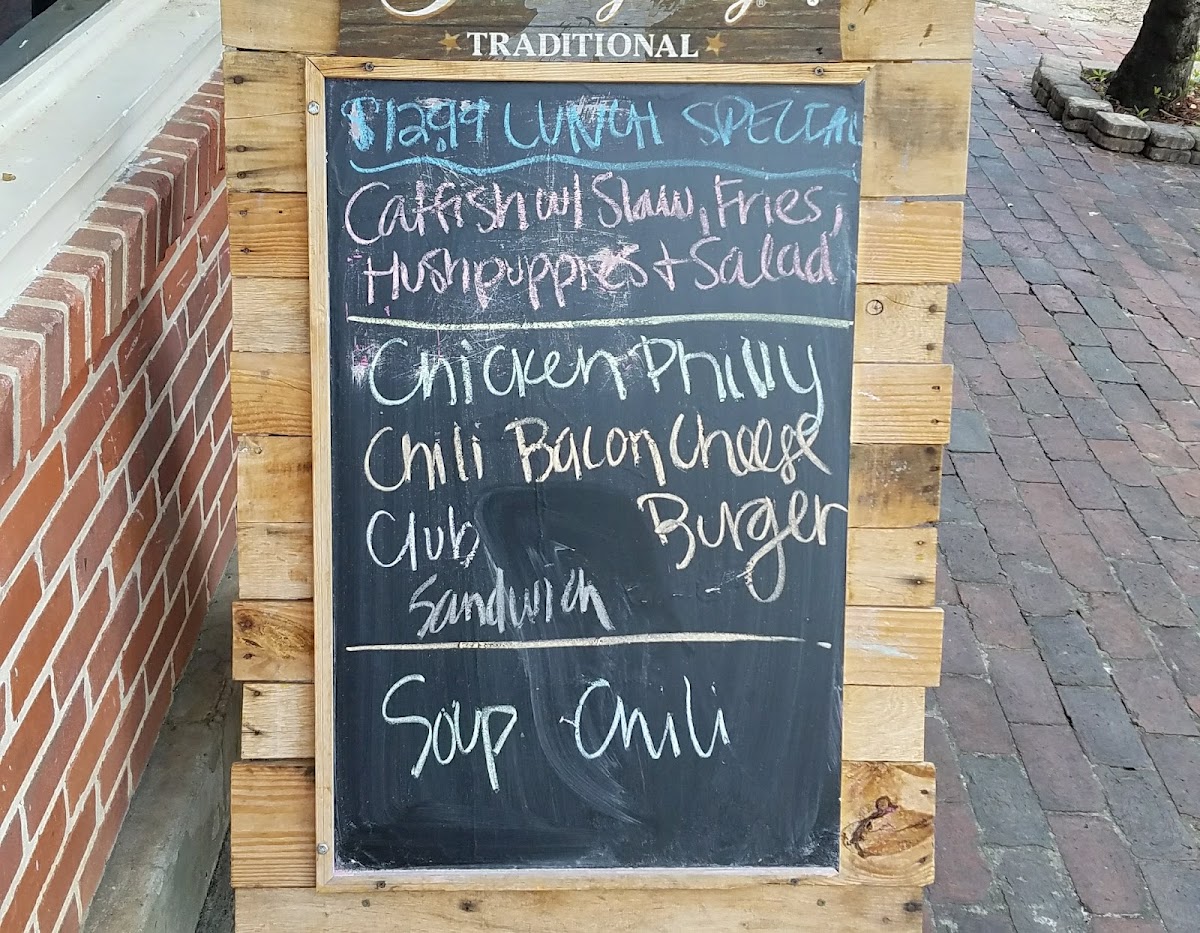 TRADITIONAL
$12.99 LUNCH SPECIAL
Catfish w/ Slaw, Fries,
Hushpuppies + Salad
Chicken Philly
Chili Bacon Cheese
Club Burger
Sandwich
Soup - Chili